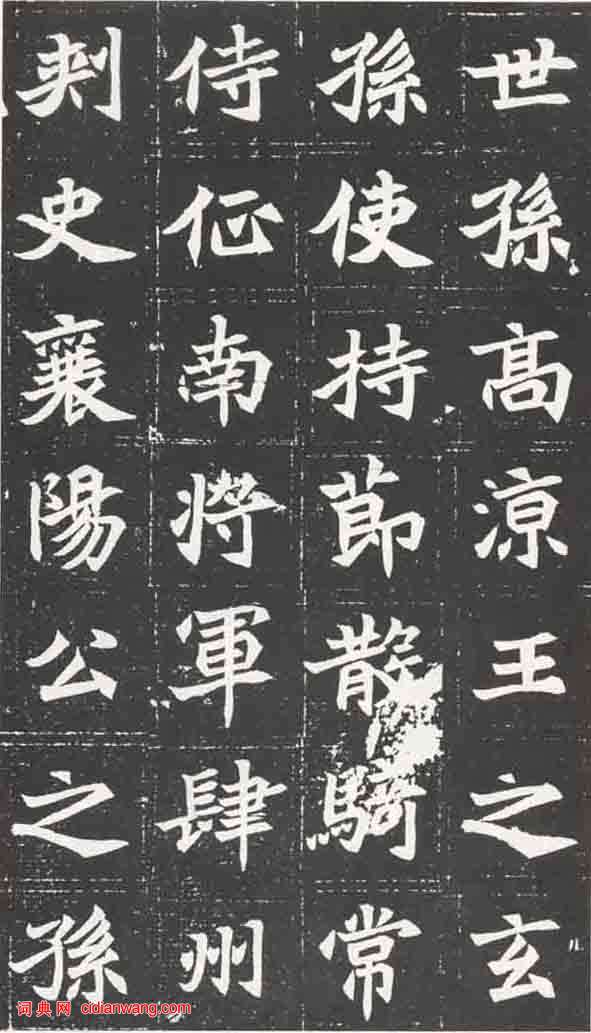 世孫高涼王之玄
孫使持節散騎常
侍征南將軍肆州
刺史襄陽公之孫
词典网 cidianwang.com